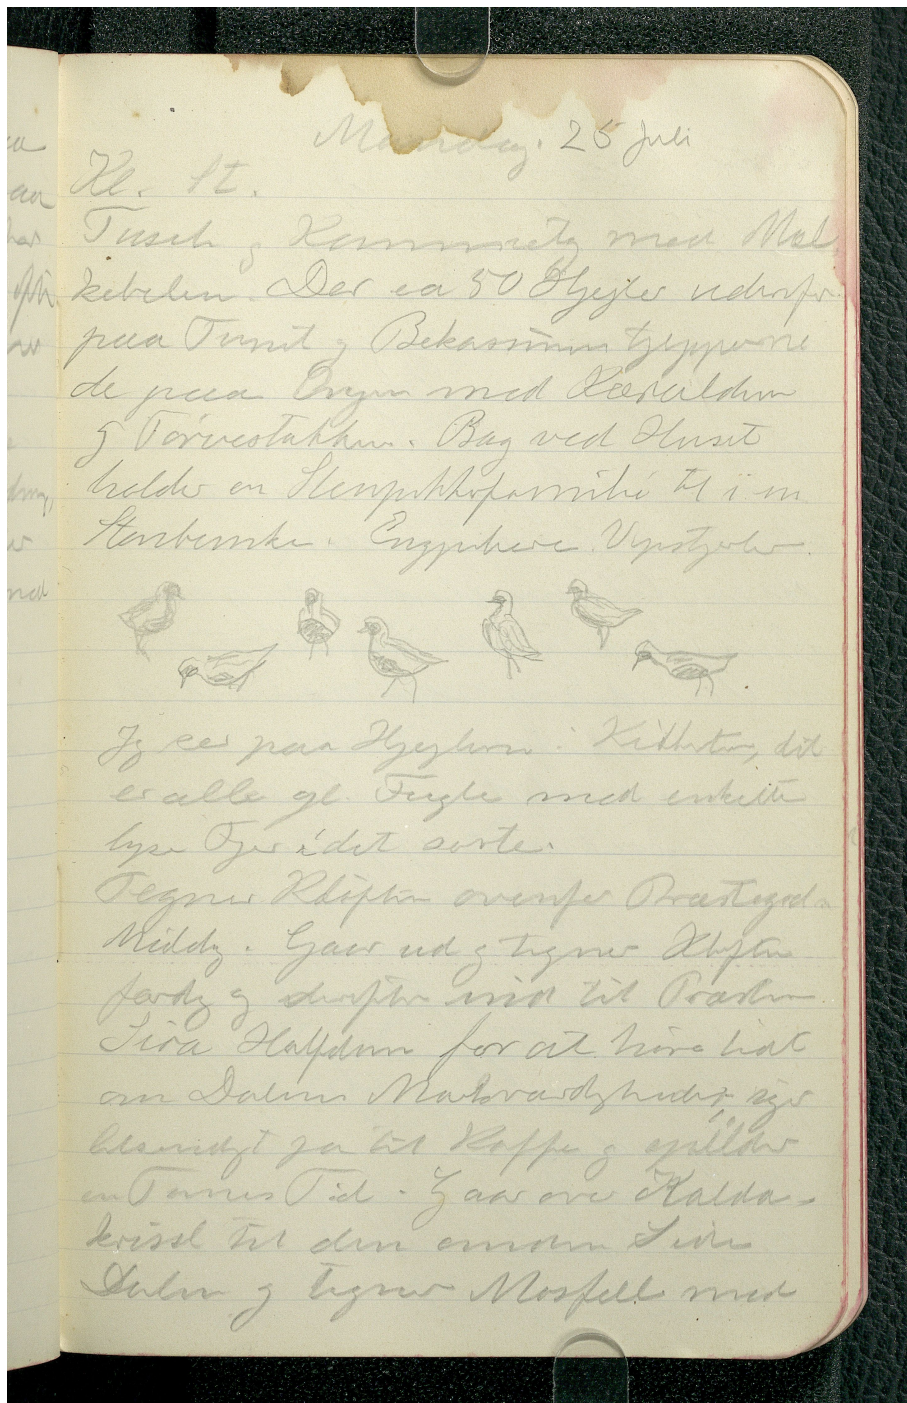 Mandag. 25 Juli
Kl. St.
Tusch og med Mal
Der ca 50 Hjejler udenfor
paa Tunet og
de paa Engen med Kærulden
og Tørvestakken. Bag ved Huset
holder en Stenpikkerfamilie til i en
Stenbunke. Engpibere. Vipstjerter.
Jeg ser paa Hjejlerne i Kikkerten, det
er alle gl. Fugle med enkelte
lyse Fjer i det sorte.
Tegner Kløften ovenfor Præstegd.
Middag. Gaar ud og tegner Kløften
færdig og derefter ind til Præsten
Sira Halfdan for at høre lidt
om Dalens Mærkværdigheder, siger
ja tak til Kaffe og
en Times Tid. Gaar over Kalda-
kvissl til den anden Side
Dalen og tegner Mosfell med